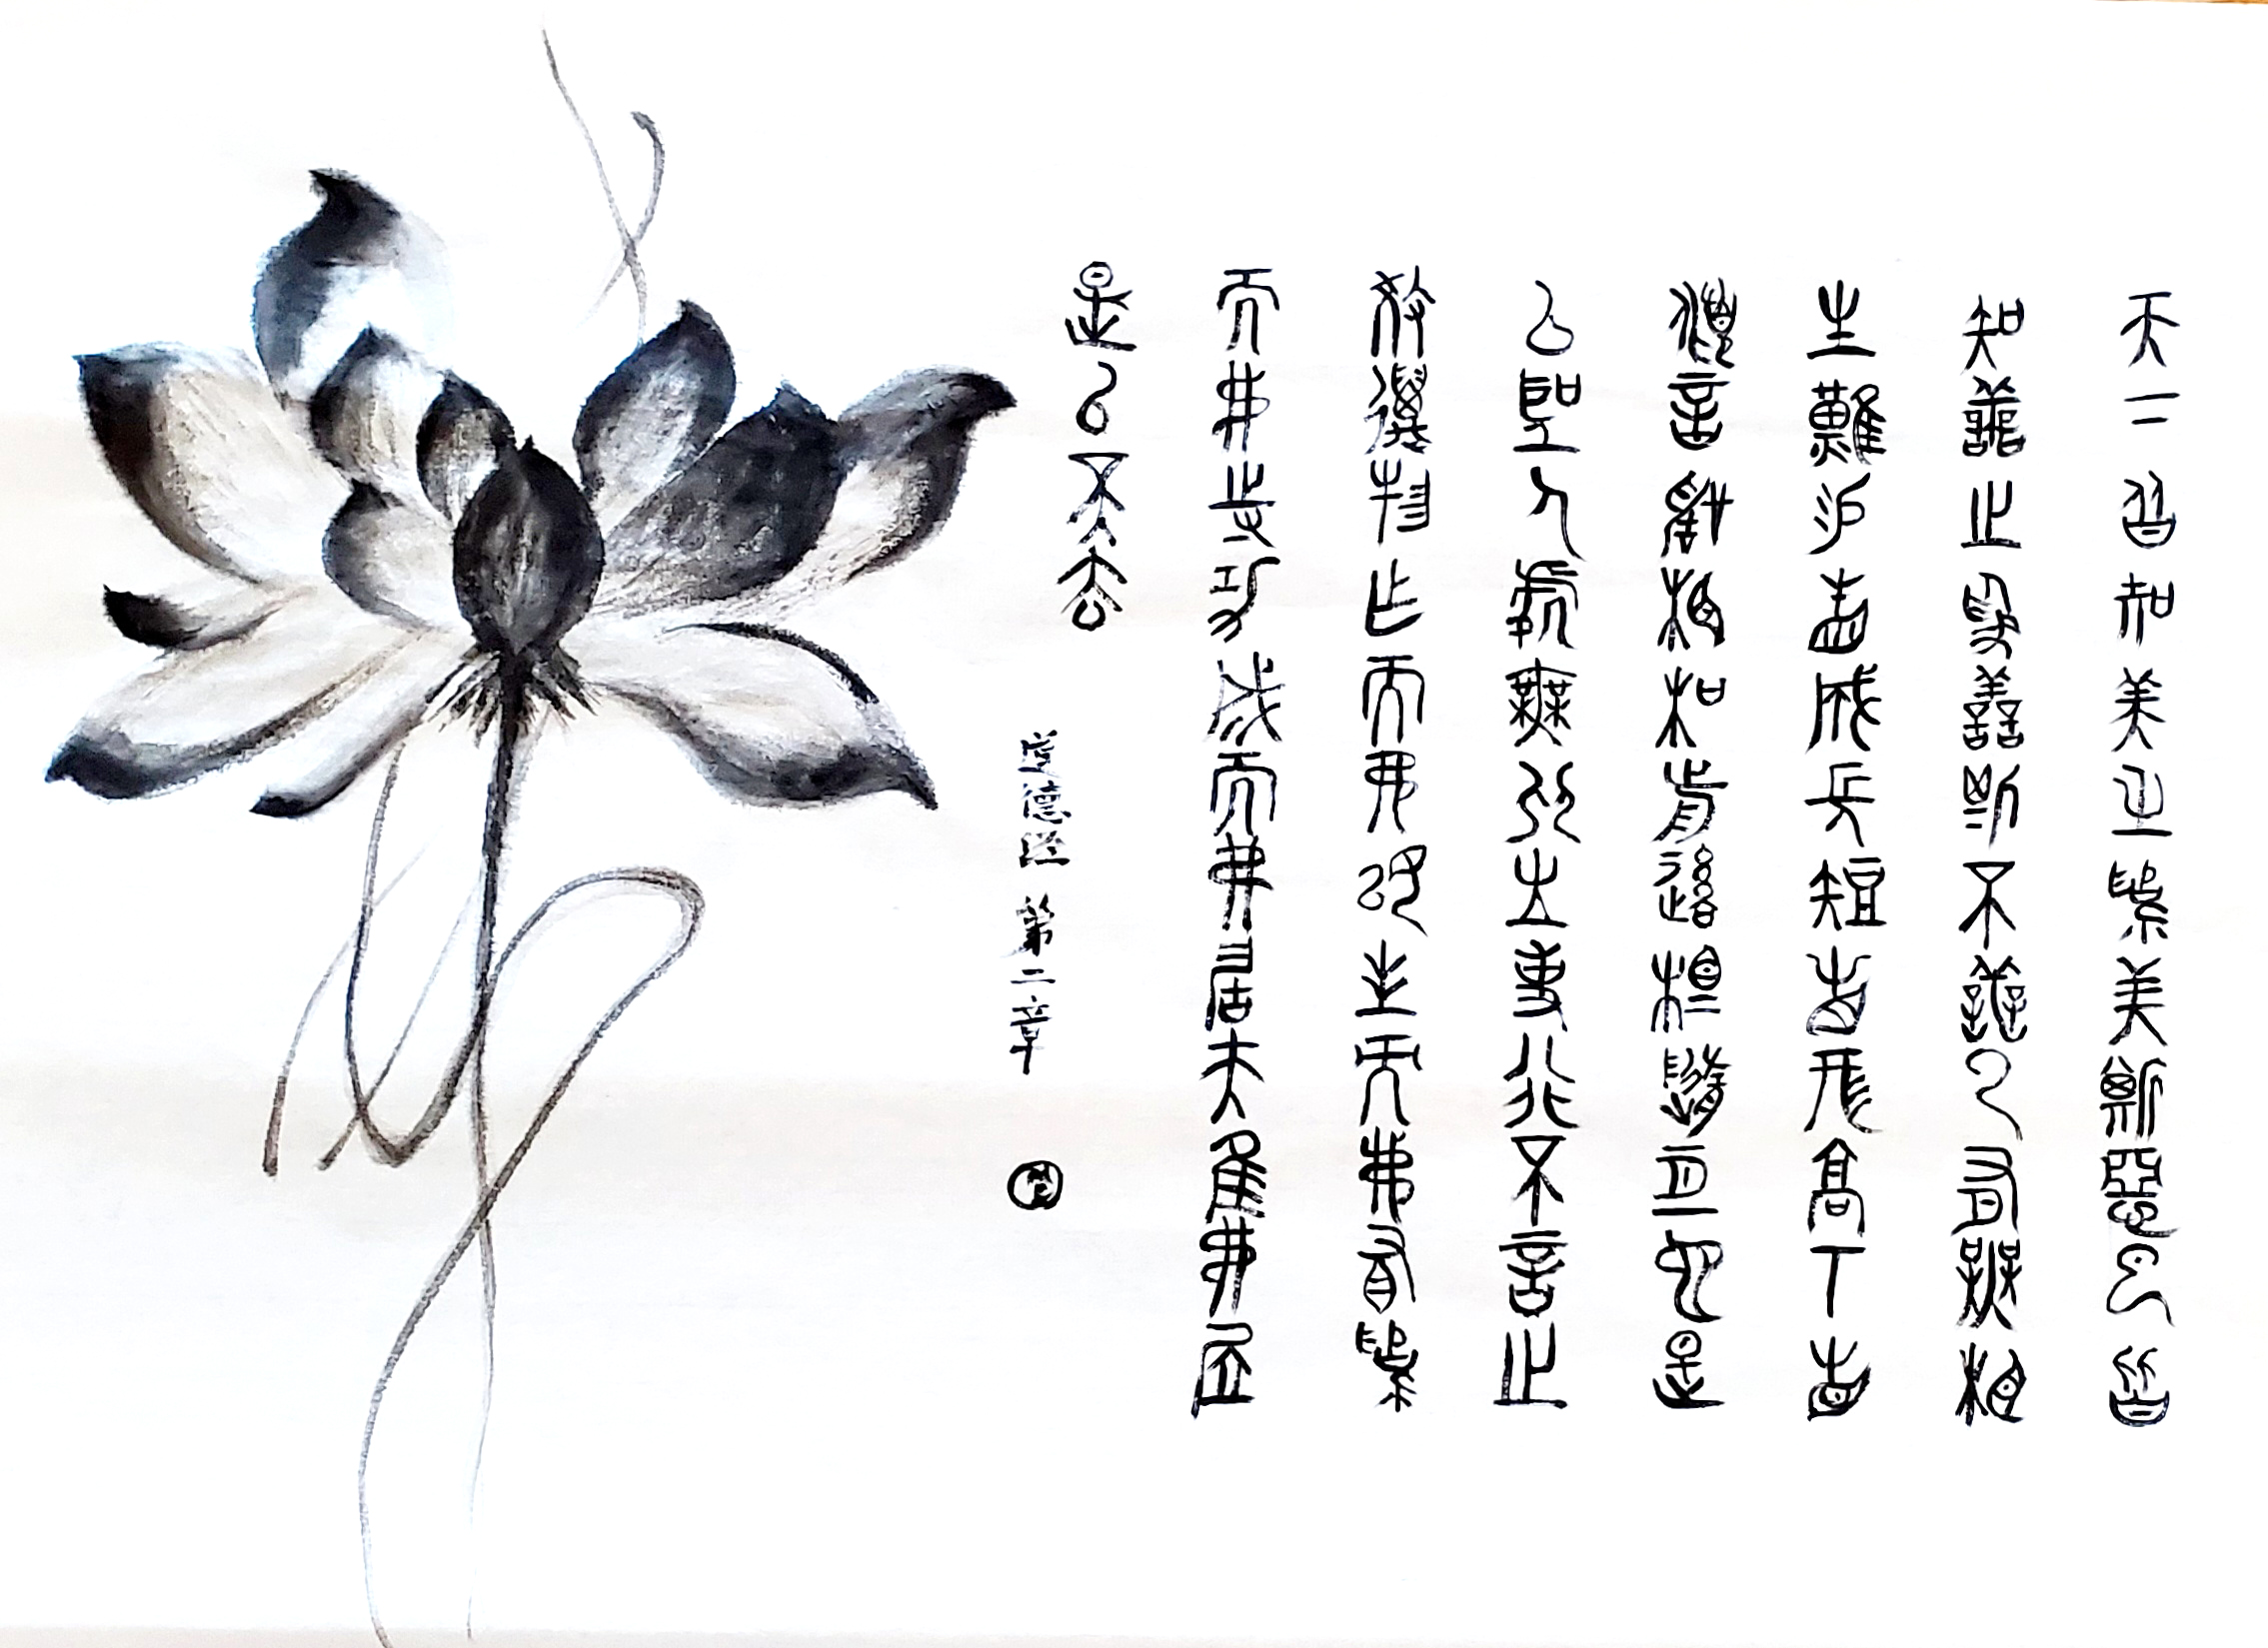 天下皆知美之為美斯惡已皆
知善之為善斯不善已有無相
生難易成長短形高下
音聲相和前後相隨恆也是
以聖人處無為之事行不言之
教萬物作而弗始生而弗有為
而弗恃功成而弗居夫唯弗居
是以不去
道德經 第二章